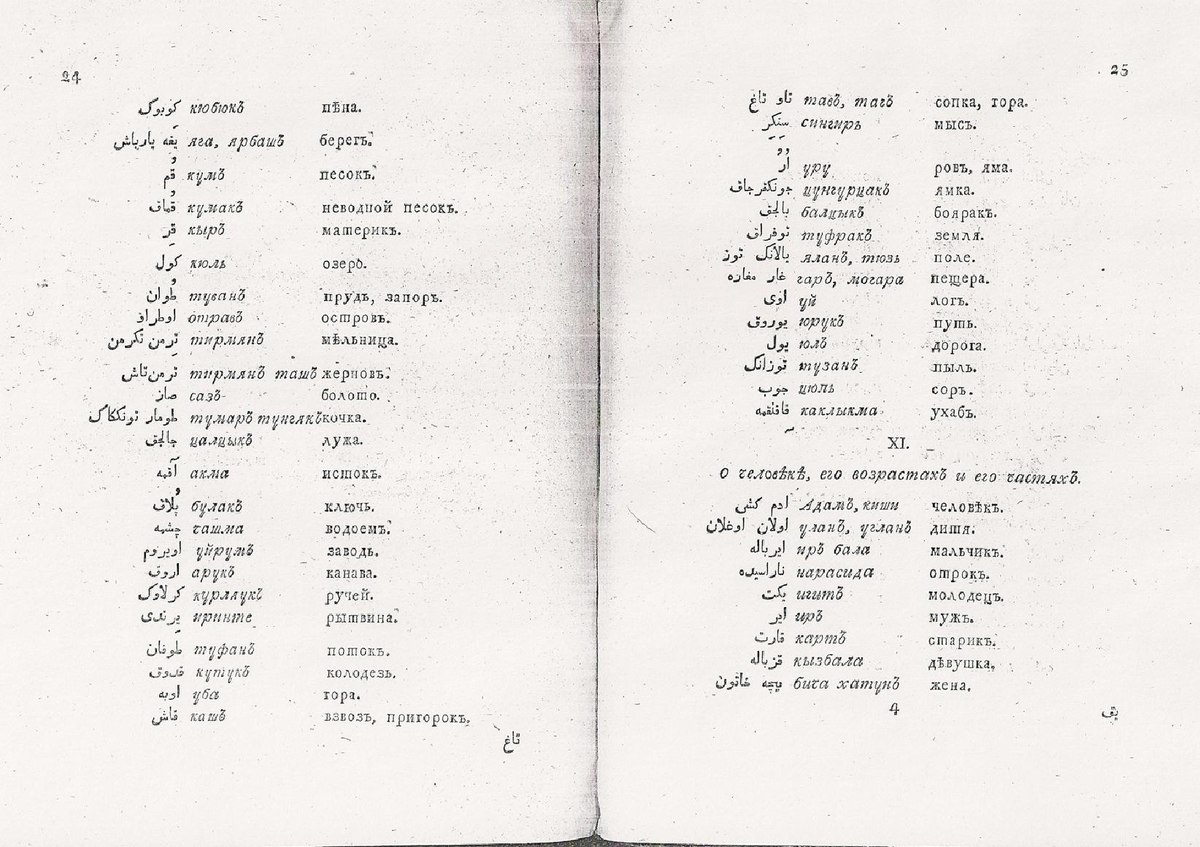 24
كوبوك кюбюкъ пѣна.
يغه يارباش яга, ярбашъ берегъ.
قم кумъ песокъ.
قماق кумакъ неводной песокъ.
قر кыръ материкъ.
كول кюль озеро.
طوان туванъ прудь, запоръ.
اوطراف отравъ островъ.
ترمن تكرمن тирмянъ мѣльница.
ترمن تاش тирмянъ ташъ жерновъ.
صاز сазъ болото.
طومار تونككاك тумаръ тунгякъ кочка.
чалчыкъ лужа.
آقمه акма истокъ.
بلاق булакъ ключь.
چشمه чашма водоемъ.
اويروم уйрумъ заводь.
اروق арукъ канава.
كرلاوك курлаукъ ручей.
يرندى иринте рытвина.
طوفان туфанъ потокъ.
قدوق кутукъ колодезь.
اوبه уба гора.
قاش кашъ взвозъ, пригорокъ.
تاغ
25
تاو تاغ тавъ, тагъ сопка, гора.
سنكر сингиръ мысъ.
ار уру ровъ, яма.
ямка.
بالچق балцыкъ бояракъ.
توفراق туфракъ земля.
يالانك توز яланъ, тюзь поле.
غار مغاره гаръ, могара пещера.
اوى уй логъ.
يوروق юрукъ путь.
يول юлъ дорога.
توزانك тузанъ пыль.
чوب цюпь соръ.
каклыкма ухабъ.
XI.
О человѣкѣ, его возрастахъ и его частяхъ.
ادم كشى Адамъ, киши человѣкъ.
اولان اوغلان уланъ, угланъ дитя.
ايرباله иръ бала мальчикъ.
ناراسيده нарасида отрокъ.
يكت игитъ молодецъ.
اير иръ мужъ.
قارت картъ старикъ.
قزباله кызбала дѣвушка.
بيچه خاتون бича хатунъ жена.
4